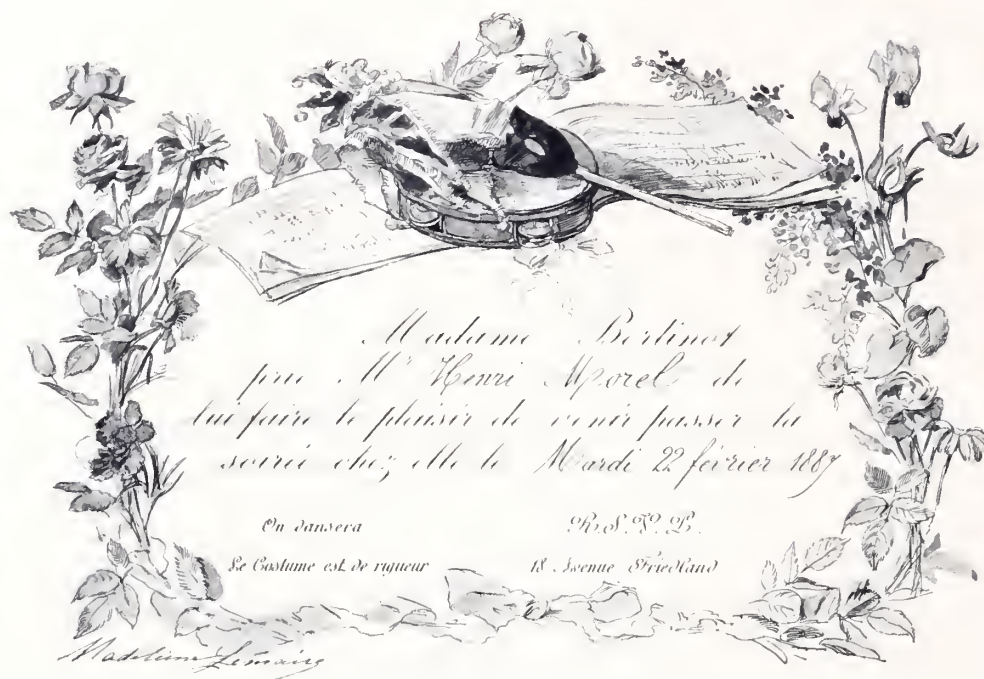 Madame Bertinot
prie Mr Henri Morel de
lui faire le plaisir de venir passer la
soirée chez elle le Mardi 22 février 1887
On dansera
R.S.V.P.
Le Costume est de rigueur
18 Avenue Friedland
Madeleine Lemaire